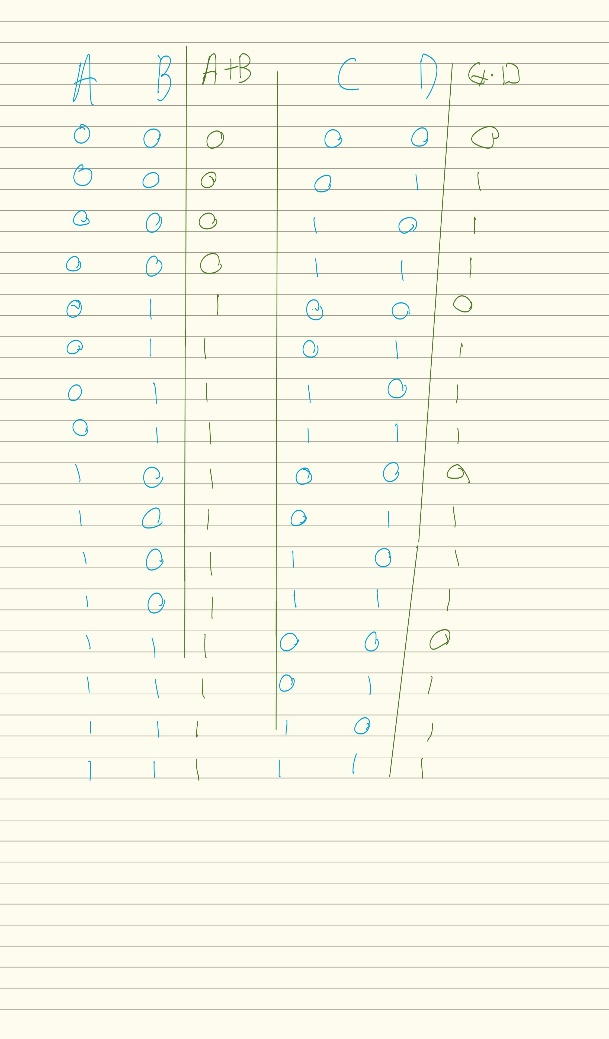 A B A+B C D C·D
0 0 0 0 0 0
0 0 0 0 1 1
0 0 0 1 0 1
0 0 0 1 1 1
0 1 1 0 0 0
0 1 1 0 1 1
0 1 1 1 0 1
0 1 1 1 1 1
1 0 1 0 0 0
1 0 1 0 1 1
1 0 1 1 0 1
1 0 1 1 1 1
1 1 1 0 0 0
1 1 1 0 1 1
1 1 1 1 0 1
1 1 1 1 1 1